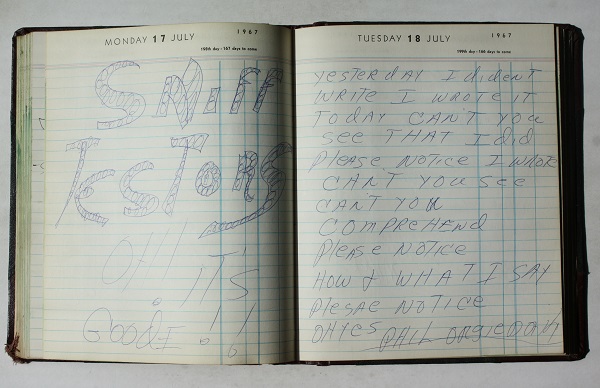 MONDAY 17 JULY 1967
198th day - 167 days to come
SNIFF
TESTORS
OH!
IT'S
GOODE!!
TUESDAY 18 JULY 1967
199th day - 166 days to come
YESTERDAY I didENT
WRITE I WROTE IT
TODAY CAN'T YOU
SEE THAT I did
PLEASE NOTICE I WROTE
CAN'T YOU SEE
CAN'T YOU
COMPREHEND
PLEASE NOTICE
HOW & WHAT I SAY
PLESAE NOTICE
OH YES PHIL